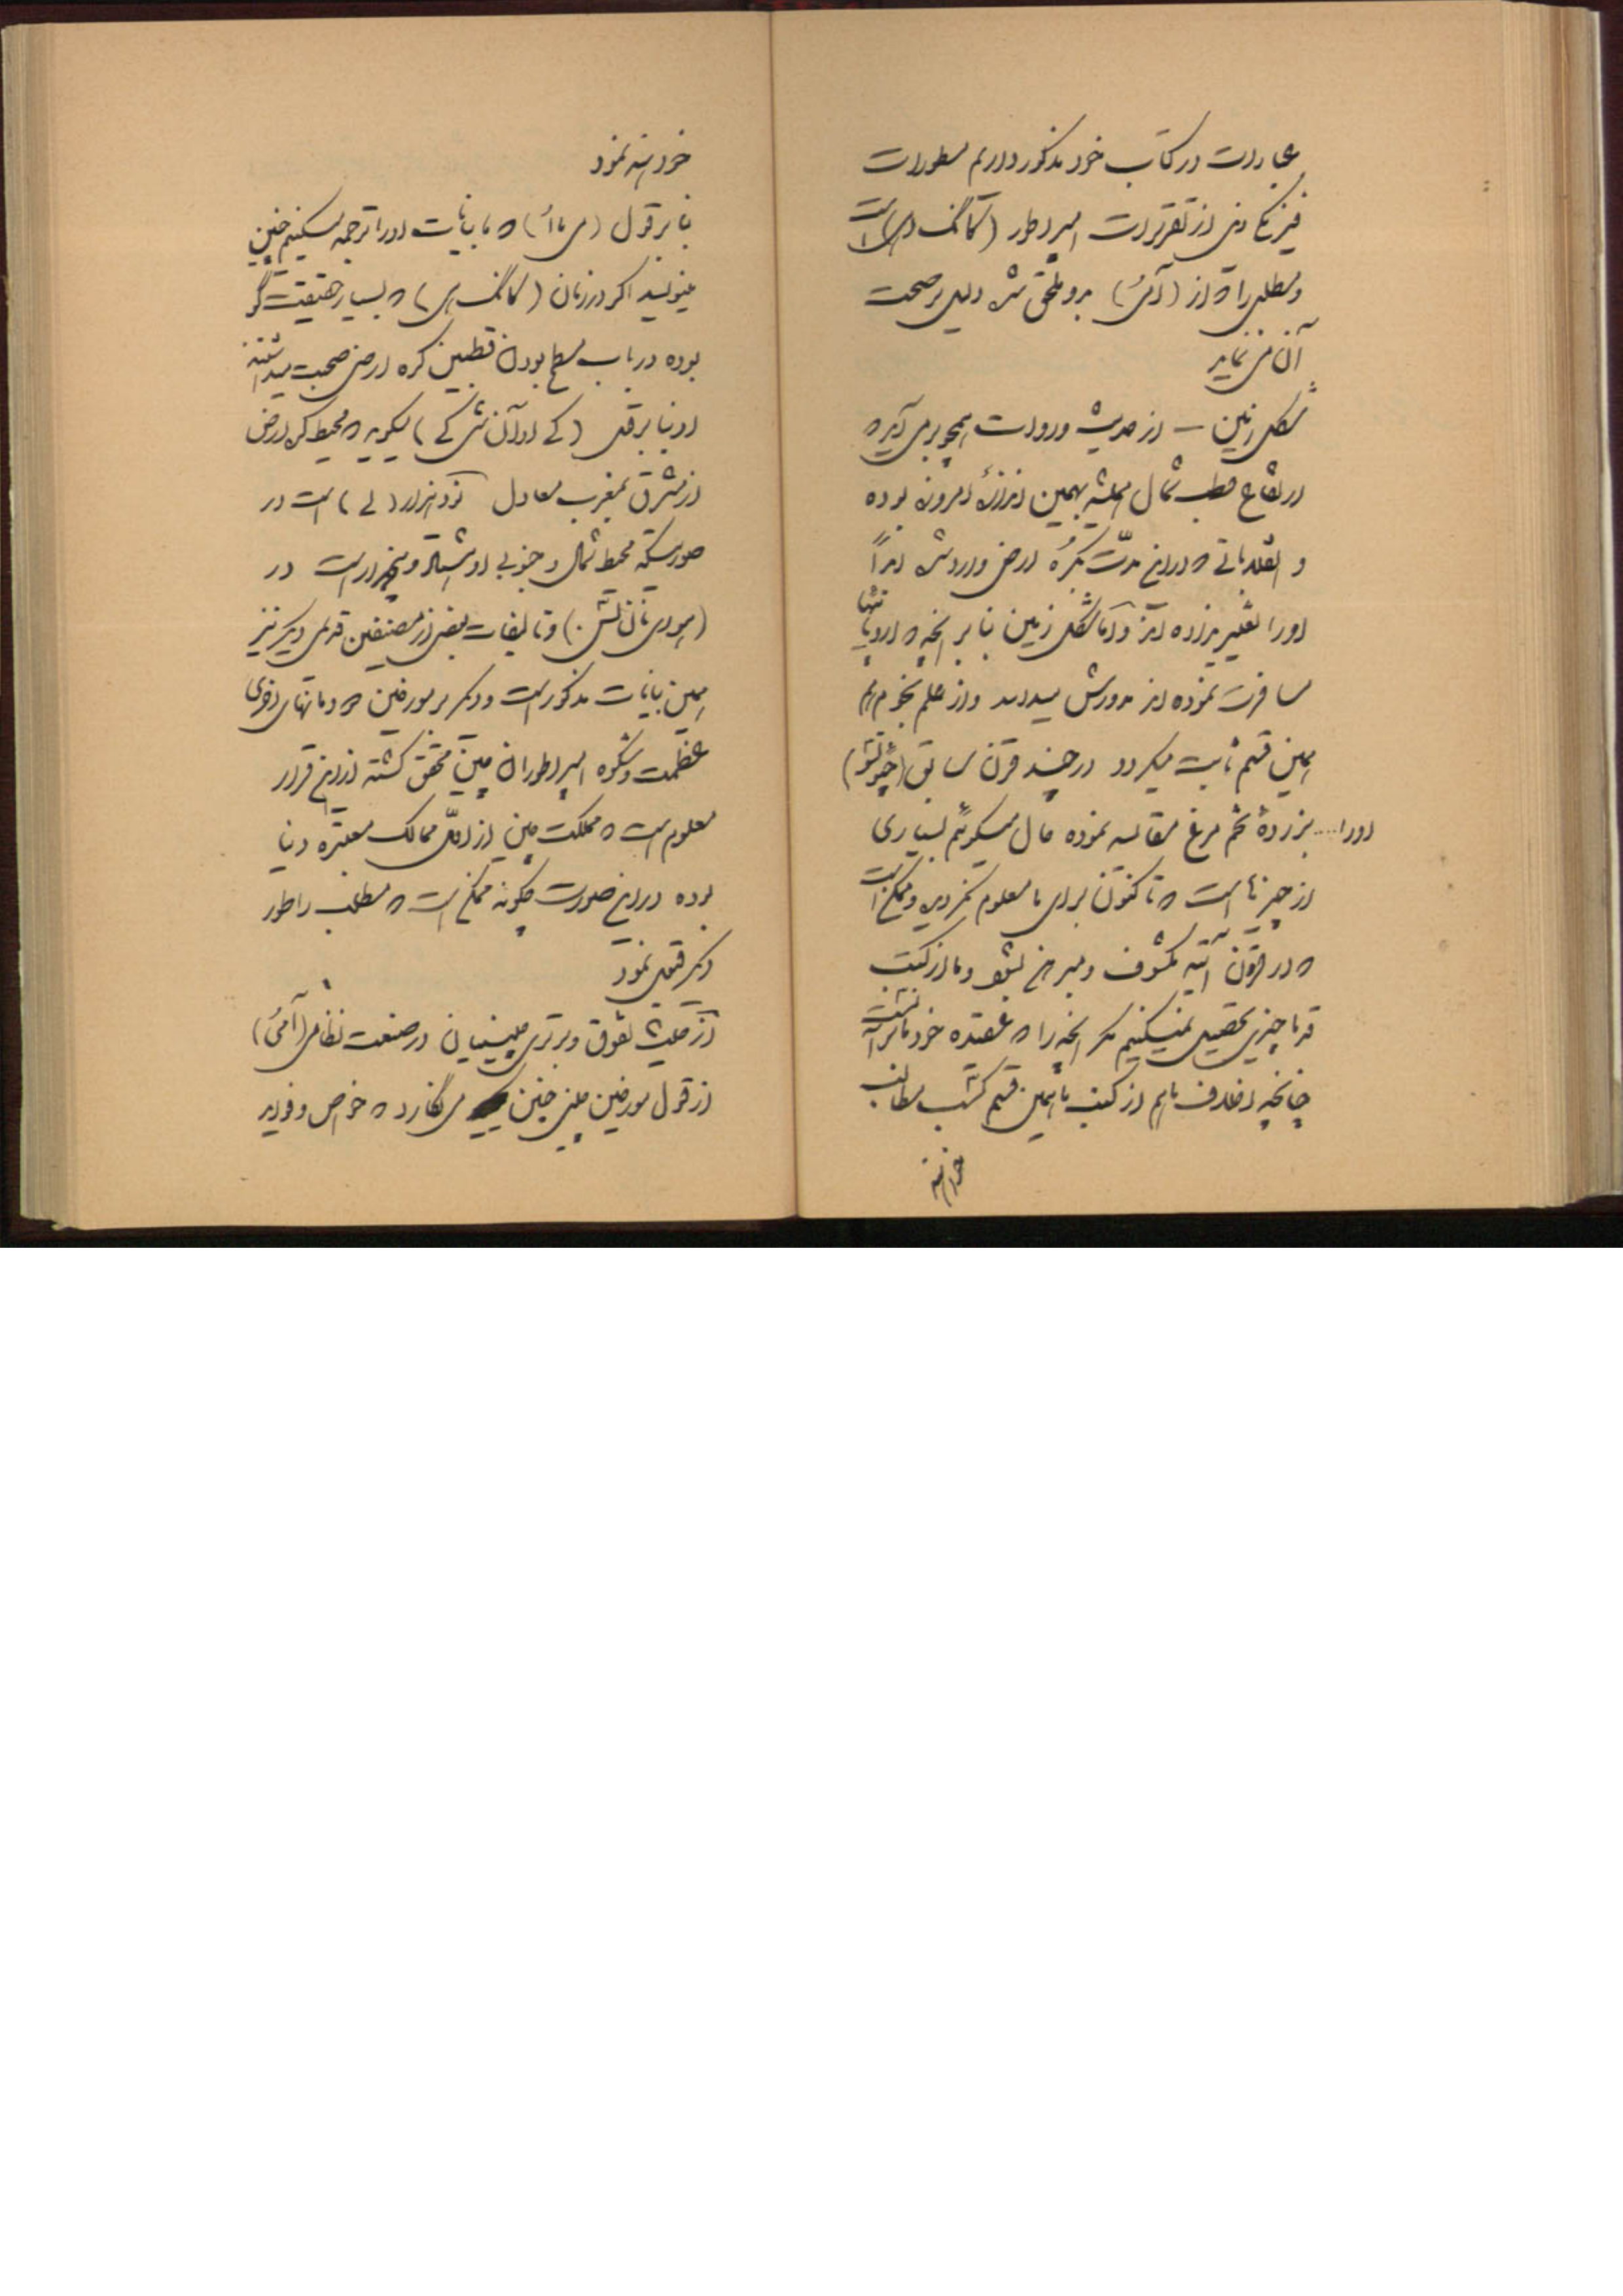 عبارات در کتاب خود مذکور داریم مسطورات
فیزیکی از تقریرات امپراطور (کانگ هی) است
و مطلبی را که از (آمی) بدو ملحق شد دلیل بر صحت
آن می‌نماید
شکل زمین – از حدیث و روایت همچو برمی‌آید که
ارتفاع قطب شمال همیشه بهمین اندازهٔ امروزه بوده
و انقلاباتی که در این مدّت بکرهٔ ارض وارد شد ابداً
او را تغییر نداده اند و اما شکل زمین بنا بر آنچه که اروپائیها
مسافرت نموده اند مدورش میدانند و از علم نجوم هم
همین قسم ثابت میگردد در چند قرن سابق (چوتشو)
او را .... بزردهٔ تخم مرغ مقایسه نموده حال میگوئیم بسیاری
از چیزها است که تا کنون برای ما معلوم نگردیده و ممکن است
که در قرون آتیه مکشوف و مبرهن بشود و ما از کتب
قدما چیزی تحصیل نمیکنیم مگر آنچه را که عقیده خودمان بر آنست
چنانچه اخلاف ما هم از کتب ما همین قسم کسب مطالب
خواهند
خواهند نمود
بنا بر قول (می ما) که ما بیانات او را ترجمه میکنیم چنین
مینویسد اگر در زمان (کانگ هی) که بسیار حقیقت گو
بوده در باب مسطح بودن قطبین کره ارض صحبت میداشتند
او بنا بر قول (کی اوآن تش کی) میگوید که محیط کره ارض
از مشرق بمغرب معادل نود هزار (لی) است در
صورتیکه محیط شمالی و جنوبی او هشتاد و پنجهزار است در
(هوای نان تش) و تألیفات بعضی از مصنفین قدیمی دیگر نیز
همین بیانات مذکور است و دیگر بر مورخین که در ما تنهای اخرای
عظمت و شکوه امپراطوران چین محقق گشته از این قرار
معلوم است که مملکت چین از اول ممالک معتبره دنیا
بوده در این صورت چگونه ممکن است که مطلب را طور
دیگر قبول نمود
از حیث تفوق و برتری چینیان در صنعت نظامی (آمی)
از قول مورخین چینی چنین می نگارد که خواص و فواید